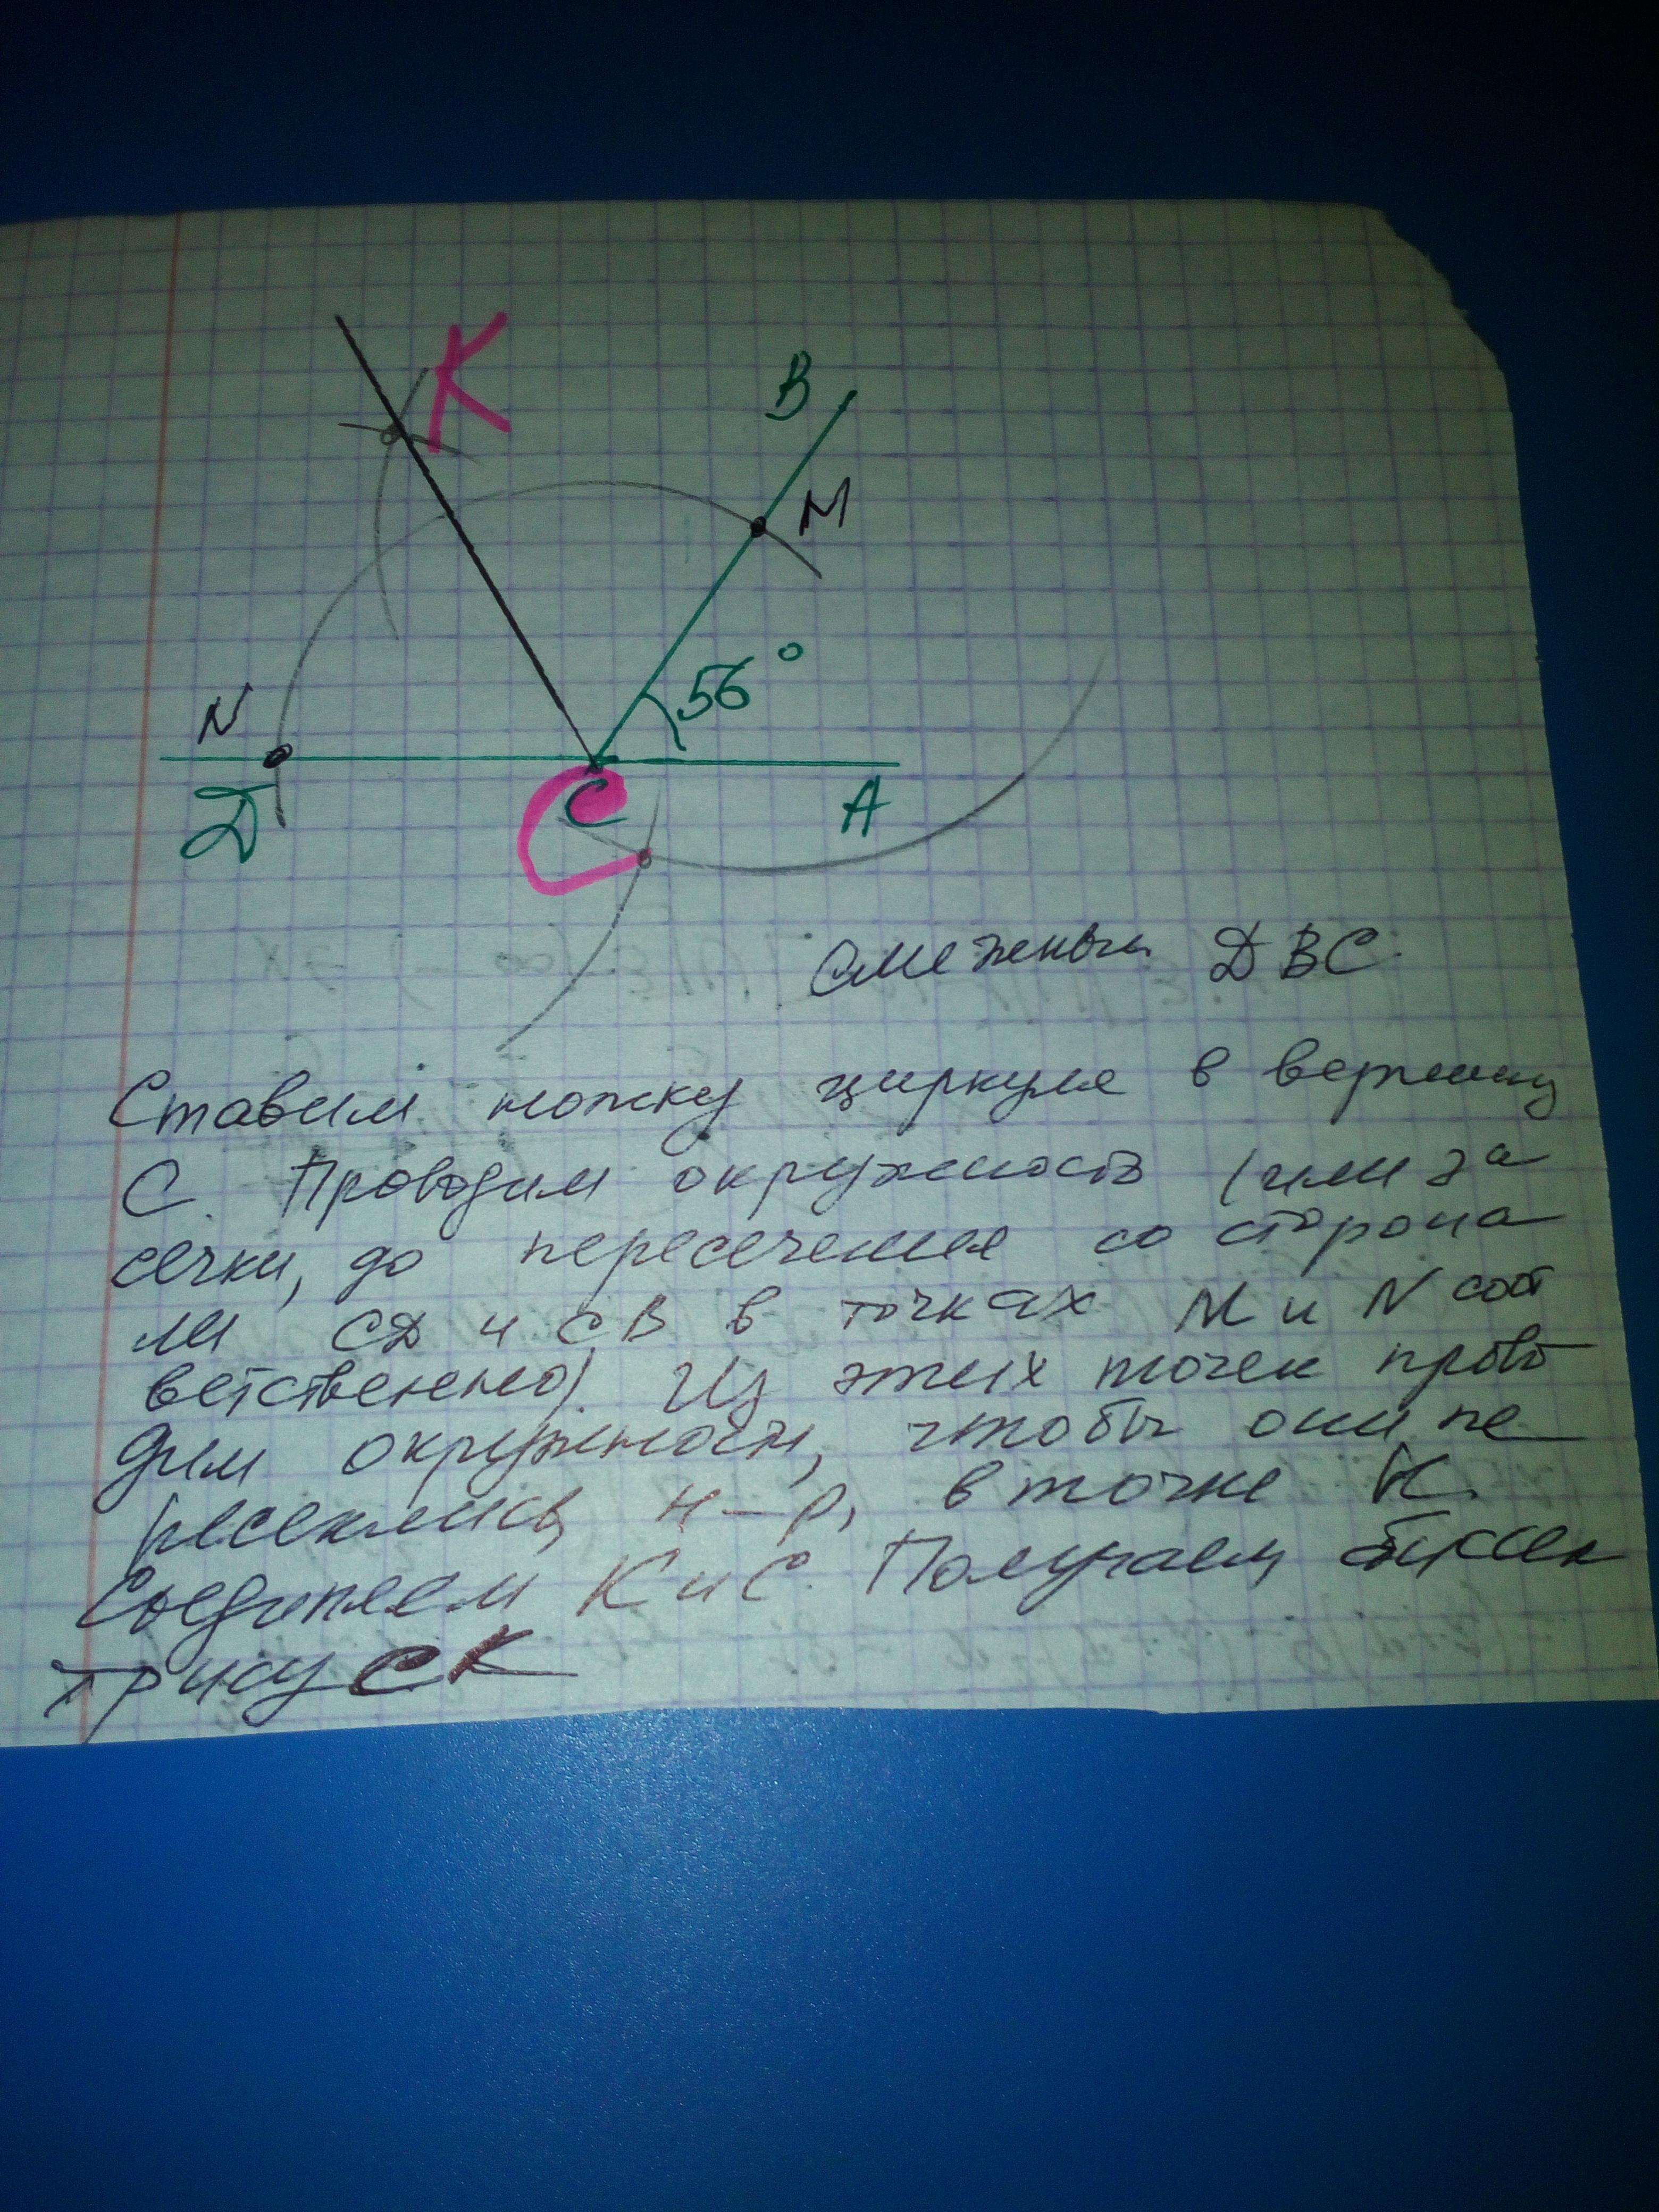 K
B
M
56°
N
C
Д
A
Смежный ДВС
Ставим ножку циркуля в вершину
С. Проводим окружность (или за
сечки, до пересечения со сторона
ми СД и СВ в точках М и N соот
ветственно). Из этих точек прово
дим окружности, чтобы они пе
ресеклись, н-р, в точке К.
Соединяем К и С. Получаем биссек
трису СК